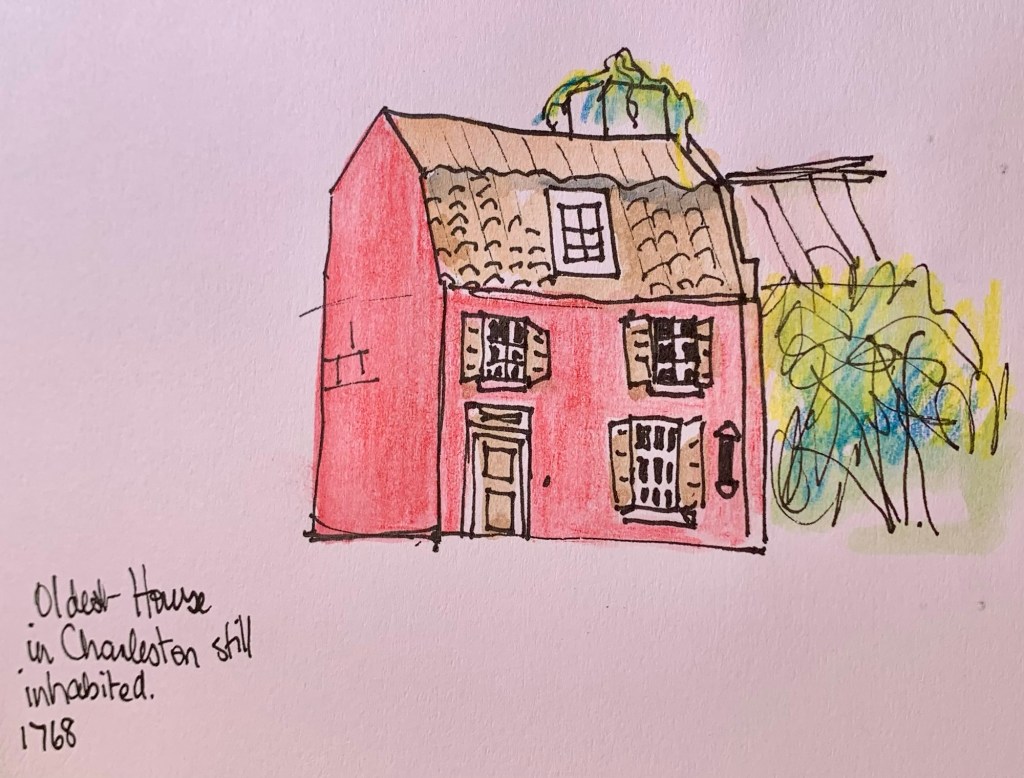 Oldest House
in Charleston still
inhabited.
1768